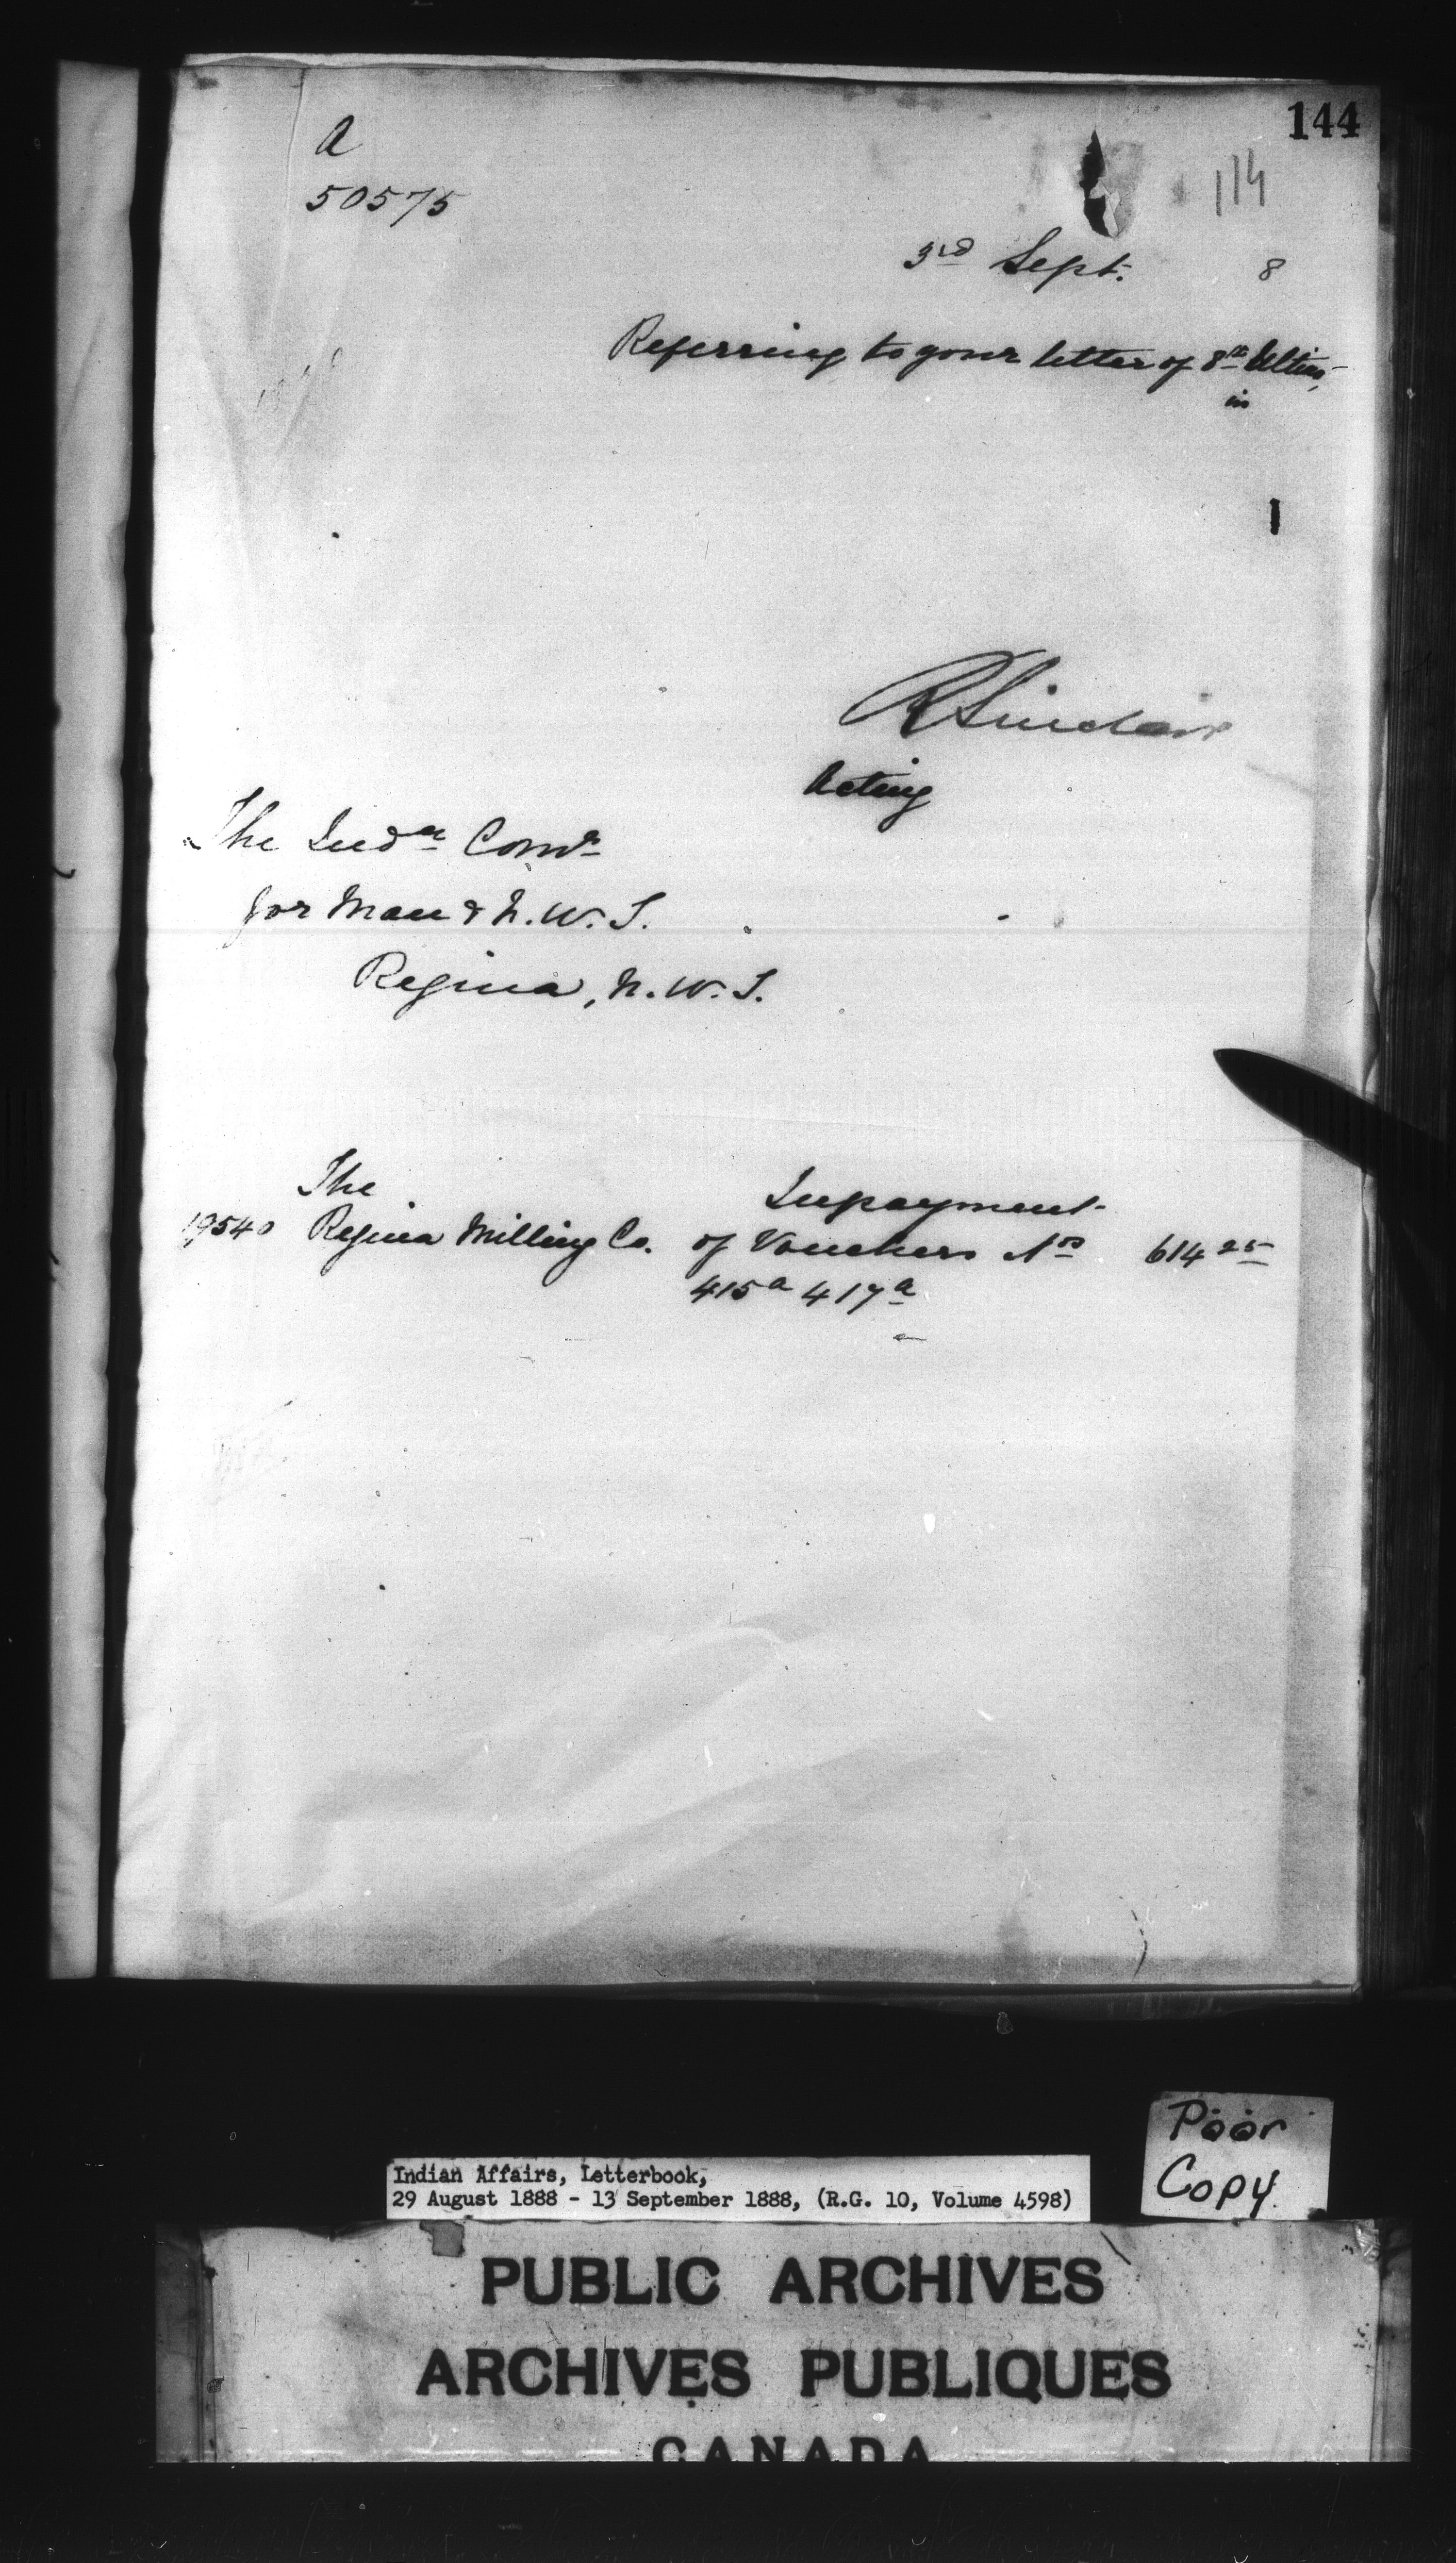 144
A
114
50575
3rd Sept. 8
Referring to your letter of 8th Ultimo,
in
1
R Sinclair
Acting
The Indn Comr
for Man & N.W.T.
Regina, N.W.T.
The Inpayment
19540 Regina Milling Co. of Vouchers Nos 614 25
415a 417a
Poor
Copy
Indian Affairs, Letterbook,
29 August 1888 - 13 September 1888, (R.G. 10, Volume 4598)
PUBLIC ARCHIVES
ARCHIVES PUBLIQUES
CANADA